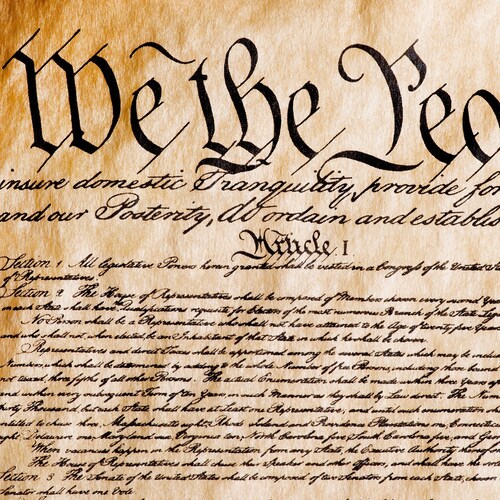 We the Peo
insure domestic Tranquility, provide for
and our Posterity, do ordain and establis
Article. I
Section 1. All legislative Powers herein granted shall be vested in a Congress of the United Sta
of Representatives.
Section 2. The House of Representatives shall be composed of Members chosen every second Year
in each State shall have Qualifications requisite for Electors of the most numerous Branch of the State Legis
No Person shall be a Representative who shall not have attained to the Age of twenty five Years
and who shall not, when elected, be an Inhabitant of that State in which he shall be chosen.
Representatives and direct Taxes shall be apportioned among the several States which may be includ
Numbers, which shall be determined by adding to the whole Number of free Persons, including those bound
not taxed, three fifths of all other Persons. The actual Enumeration shall be made within three Years af
and within every subsequent Term of ten Years, in such Manner as they shall by Law direct. The Num
thirty Thousand, but each State shall have at Least one Representative; and until such enumeration
entitled to chuse three, Massachusetts eight, Rhode Island and Providence Plantations one, Connectic
eight, Delaware one, Maryland six, Virginia ten, North Carolina five, South Carolina five, and Geo
When vacancies happen in the Representation from any State, the Executive Authority thereof
The House of Representatives shall chuse their Speaker and other Officers; and shall have the
Section 3. The Senate of the United States shall be composed of two Senators from each State, chosen
Senator shall have one Vote.